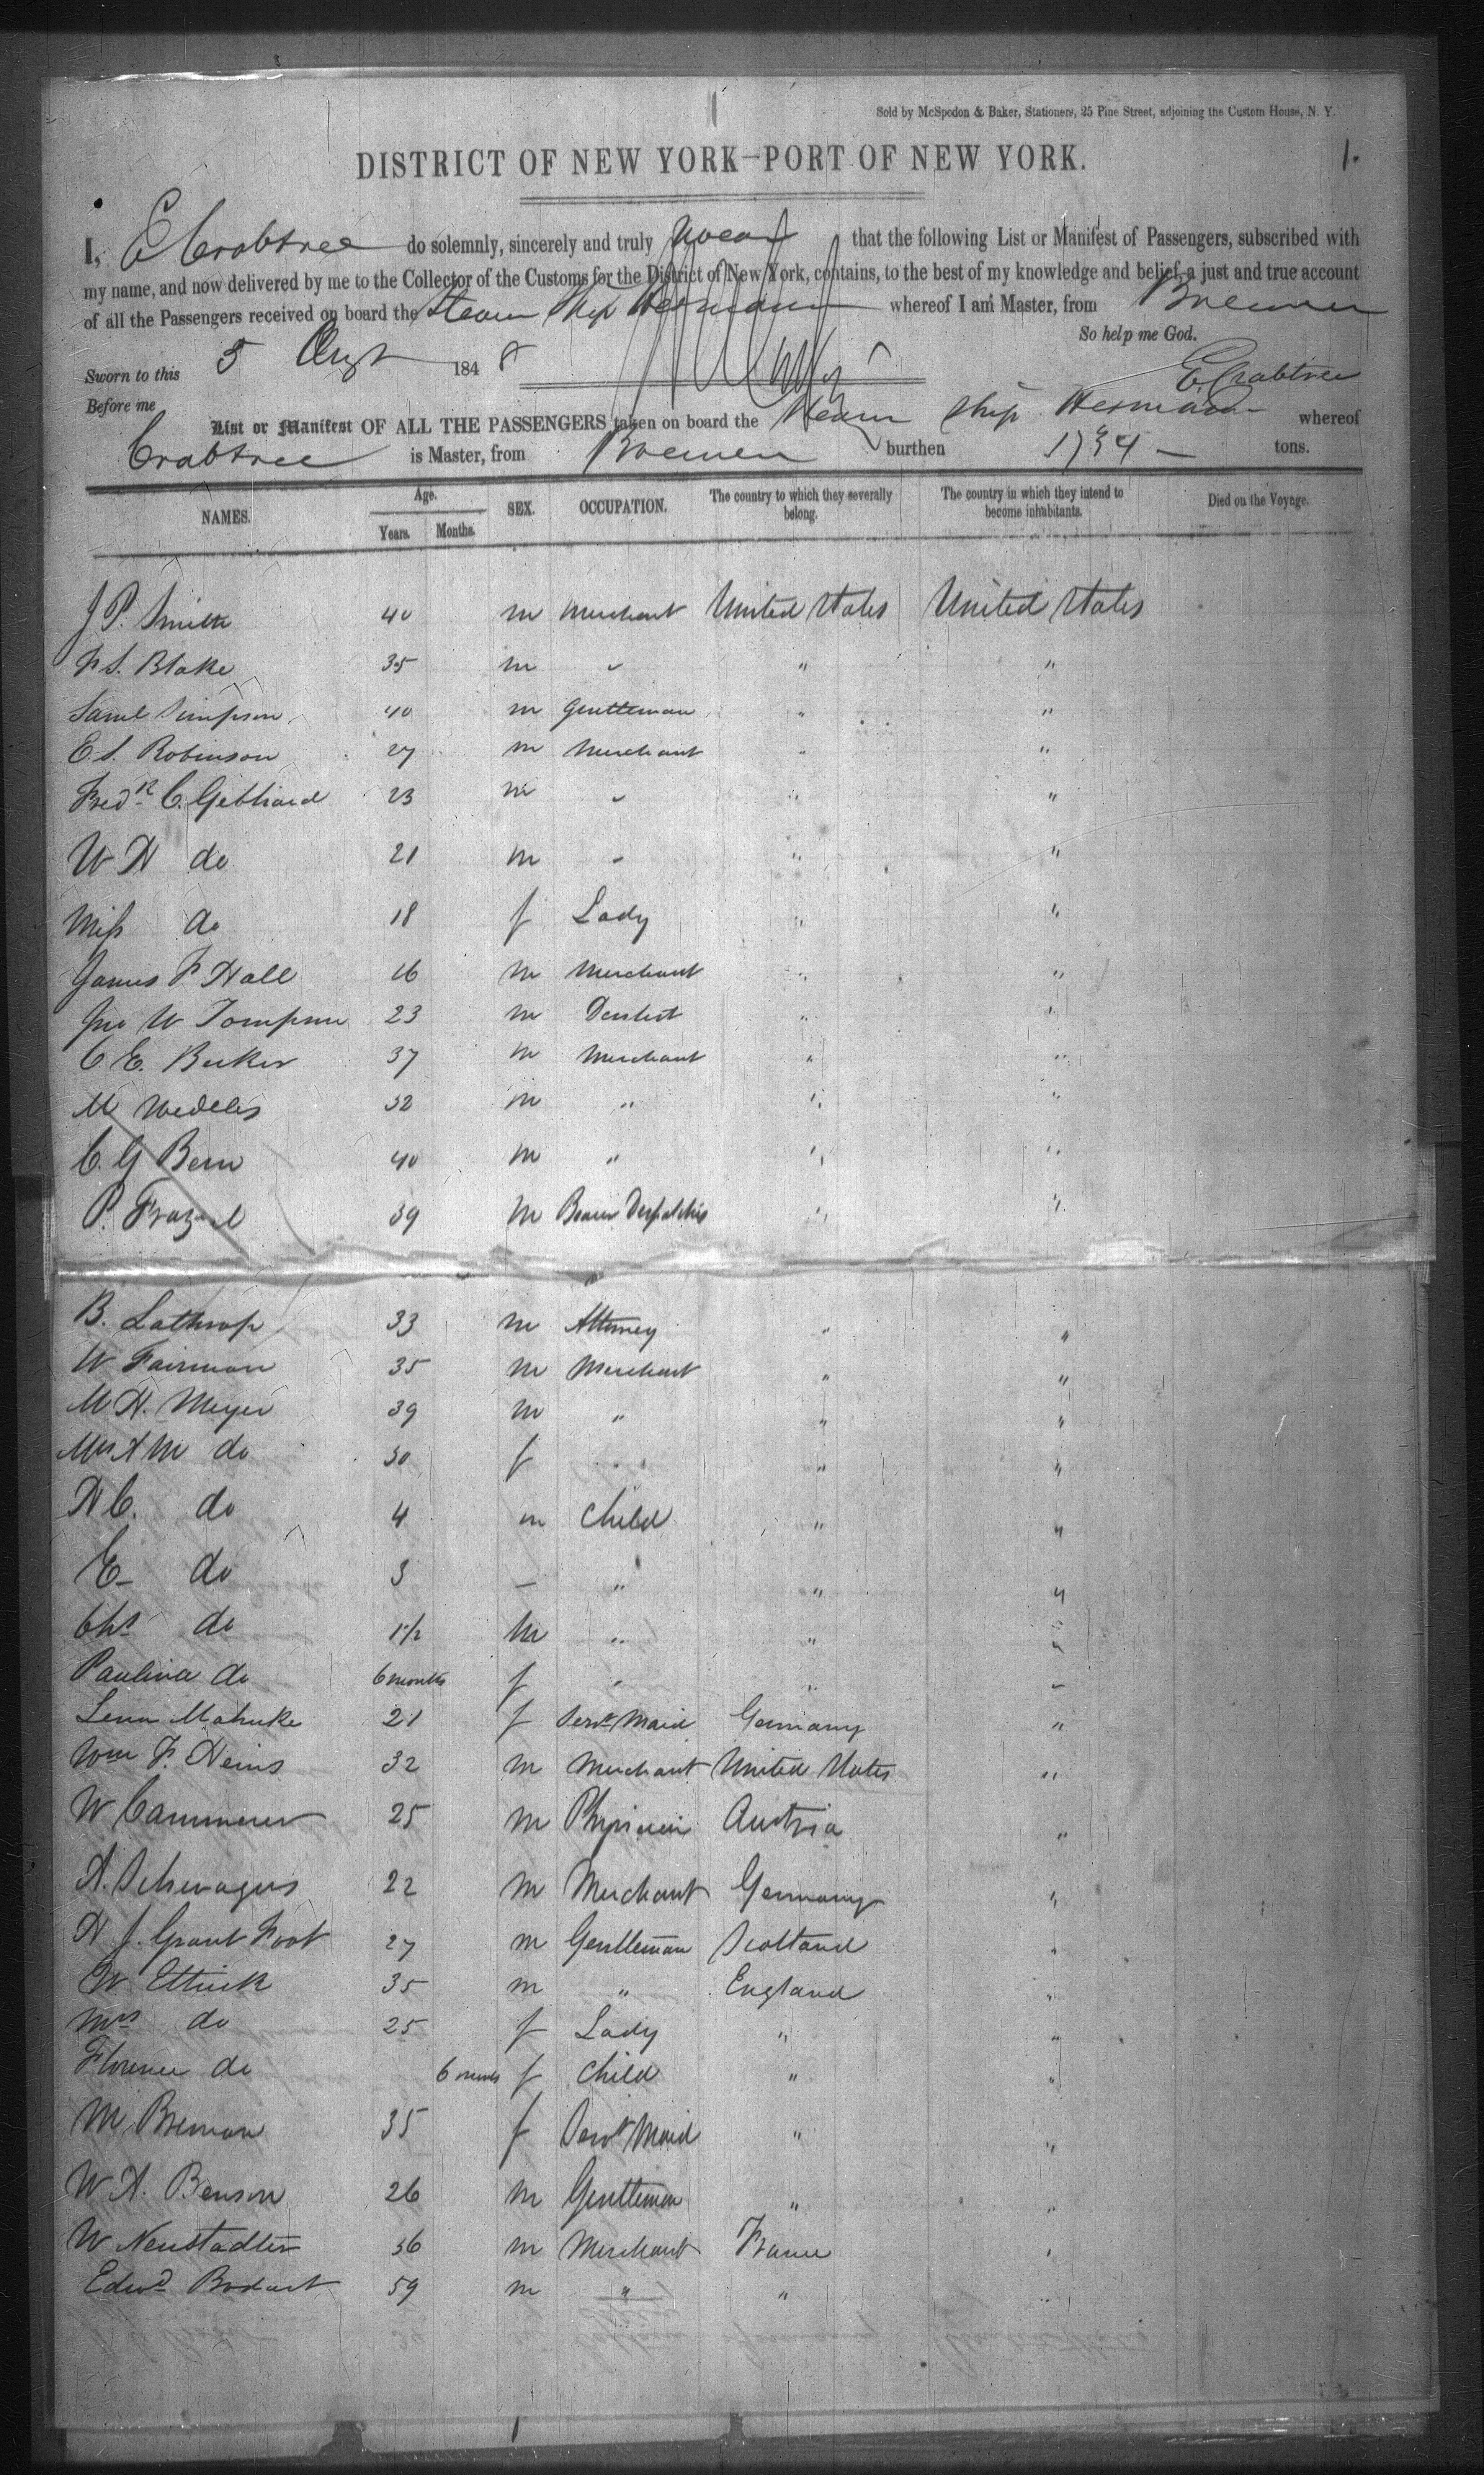 Sold by McSpedon & Baker, Stationers, 25 Pine Street, adjoining the Custom House, N. Y.
1.
DISTRICT OF NEW YORK—PORT OF NEW YORK.
I, E Crabtree do solemnly, sincerely and truly swear that the following List or Manifest of Passengers, subscribed with
my name, and now delivered by me to the Collector of the Customs for the District of New York, contains, to the best of my knowledge and belief, a just and true account
of all the Passengers received on board the Steam Ship Hermann whereof I am Master, from Bremen
So help me God.
Sworn to this 5 Augt 1848
E. Crabtree
Before me
List or Manifest OF ALL THE PASSENGERS taken on board the Steam Ship Hermann whereof
Crabtree is Master, from Bremen burthen 1734 tons.
NAMES. Age. Years. Months. SEX. OCCUPATION. The country to which they severally belong. The country in which they intend to become inhabitants. Died on the Voyage.
J P. Smith 40 m Merchant United States United States
S. Blake 35 m " " "
Saml Simpson 40 m Gentleman " "
E. S. Robinson 27 m Merchant " "
Fredk C. Gebhard 23 m " " "
W H do 21 m " " "
Miss do 18 f Lady " "
James F Hall 16 m Merchant " "
Jno W Tompson 23 m Dentist " "
C. E. Becker 37 m Merchant " "
M Wedeles 32 m " " "
C. G Bern 40 m " " "
P. 39 m Bearer Despatches " "
B. Lathrop 33 m Attorney " "
W Fairman 35 m Merchant " "
M H. Meyer 39 m " " "
Mrs H M do 30 f " " "
H C. do 4 m Child " "
E do 3 — " " "
Chs do 1½ m " " "
Paulina do 6 months f " " "
Lena Mahnke 21 f Servt Maid Germany "
Wm F. Heins 32 m Merchant United States "
W Cammerer 25 m Physician Austria "
H. 22 m Merchant Germany "
H J. Grant Foot 27 m Gentleman Scotland "
W Ettrick 35 m " England "
Mrs do 25 f Lady " "
Florence do 6 months f Child " "
M 35 f Servt Maid " "
W H. Benson 26 m Gentleman " "
W Neustadter 36 m Merchant France "
Edwd Bodart 59 m " " "